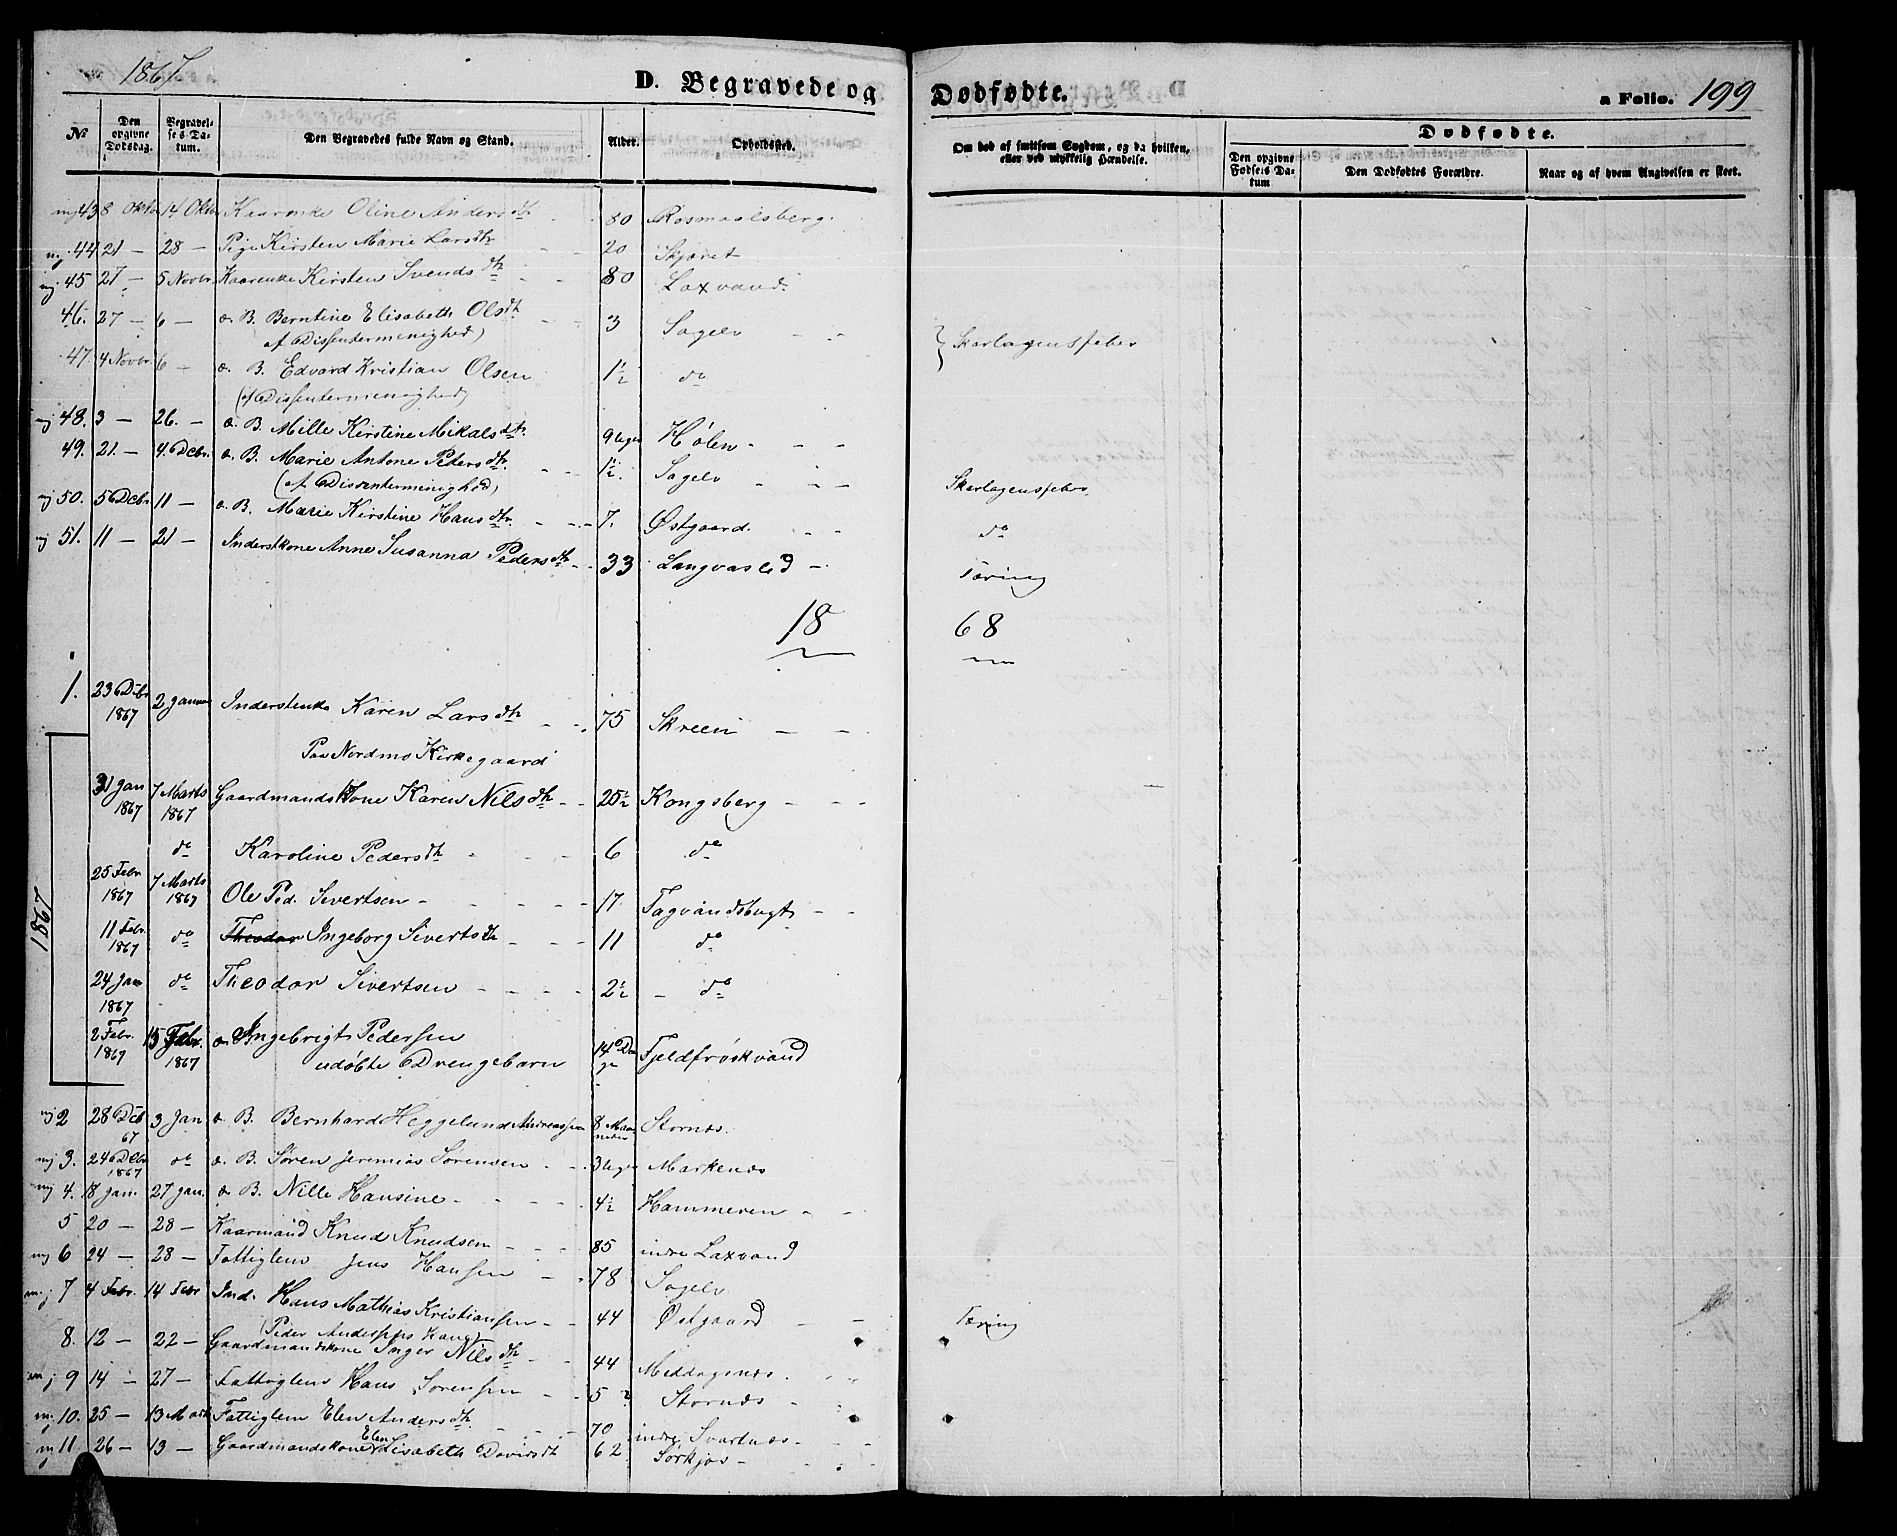 1867
D. Begravede og
Dødfødte.
a Folio. 199
№
Den opgivne Dødsdag.
Begravelses Datum.
Den Begravedes fulde Navn og Stand.
Alder.
Opholdssted.
Om død af smitsom Sygdom, og da hvilken, eller ved ulykkelig Hændelse.
Dødfødte.
Den opgivne Fødsels Datum
Den Dødfødtes Forældre.
Naar og af hvem Angivelsen er skeet.
43 8 Oktbr 14 Oktbr Kaarenke Oline Andersdtr 80 Rosmaalsberg.
44 21 — 28 — Pige Kirsten Marie Larsdtr 20 Skjæret
45 27 — 5 Novbr. Kaarenke Kirsten Svendsdtr 80 Laxvand.
46. 27 — 6 — a. B. Berntine Elisabeth Olsdtr 3 Sagelv Skarlagensfeber
af Dissentermenighed)
47. 4 Novbr. 6 — a. B. Edvard Kristian Olsen 1½ do
(af Dissentermenighed)
48. 3 — 26. — a. B. Mille Kirstine Mikalsdtr. 9 Uger Hølen
49. 21. — 4. Dcbr. a. B. Marie Antone Petersdtr. 1½. Sagelv Skarlagensfeber
(af Dissentermenighed)
50. 5 Dcbr. 11 — a. B. Marie Kirstine Hansdtr. 7. Østgaard. do
51. 11 — 21 — Inderstkone Anne Susanna Pedersdtr 33 Langvaslid Tæring
18 68
1. 23 Dcbr 1867 2 Januar Inderstenke Karen Larsdtr 75 Skreen
Paa Nordmo Kirkegaard
1867
31 Jan 1867 7 Marts 1867 Gaardmandskone Karen Nilsdtr 25½ Kongsberg
do Karoline Pedersdtr 6 do
25 Febr 1867 7 Marts 1867 Ole Ped. Sivertsen 17. Tagvandsbugt
11 Febr. 1867 do Theodor Ingeborg Sivertsdtr 11 do
24 Jan 1867 do Theodor Sivertsen 2½ do
2 Febr. 1867 15 Febr. 1867 a. Ingebrigt Pedersen
udøbte Drengebarn 14 Dage Fjeldfrøskvand
2 28 Dcb 67 3 Jan a. B. Bernhard Heggelund Andreassen 8 Maaneder Stornæs.
3. 24 Dcbr 1867 do a. B. Søren Jeremias Sørensen 3 Uger Markenæs
4. 18 Jan. 27 Jan. a. B. Nille Hansine 4½ Hammeren
5 20 — 28 — Kaarmand Knud Knudsen 85 indre Laxvand
6 24 — 28 — Fattiglem Jens Hansen 78 Sagelv
7 4 Febr. 14 Febr Ind. Hans Mathias Kristiansen 44 Østgaard Tæring
8. 12 — 22 — Gaardmandskone Inger Nilsdtr 44 Middagsnæs
9 14 — 27 — Fattiglem Hans Sørensen 5 Stornæs
10. 25 — 13 Marts Fattiglem Elen Andersdtr. 70 indre Svartnæs
11 26 — 13 — Gaardmandskone Elen Lisabeth Davidsdtr 62 Sørkjos